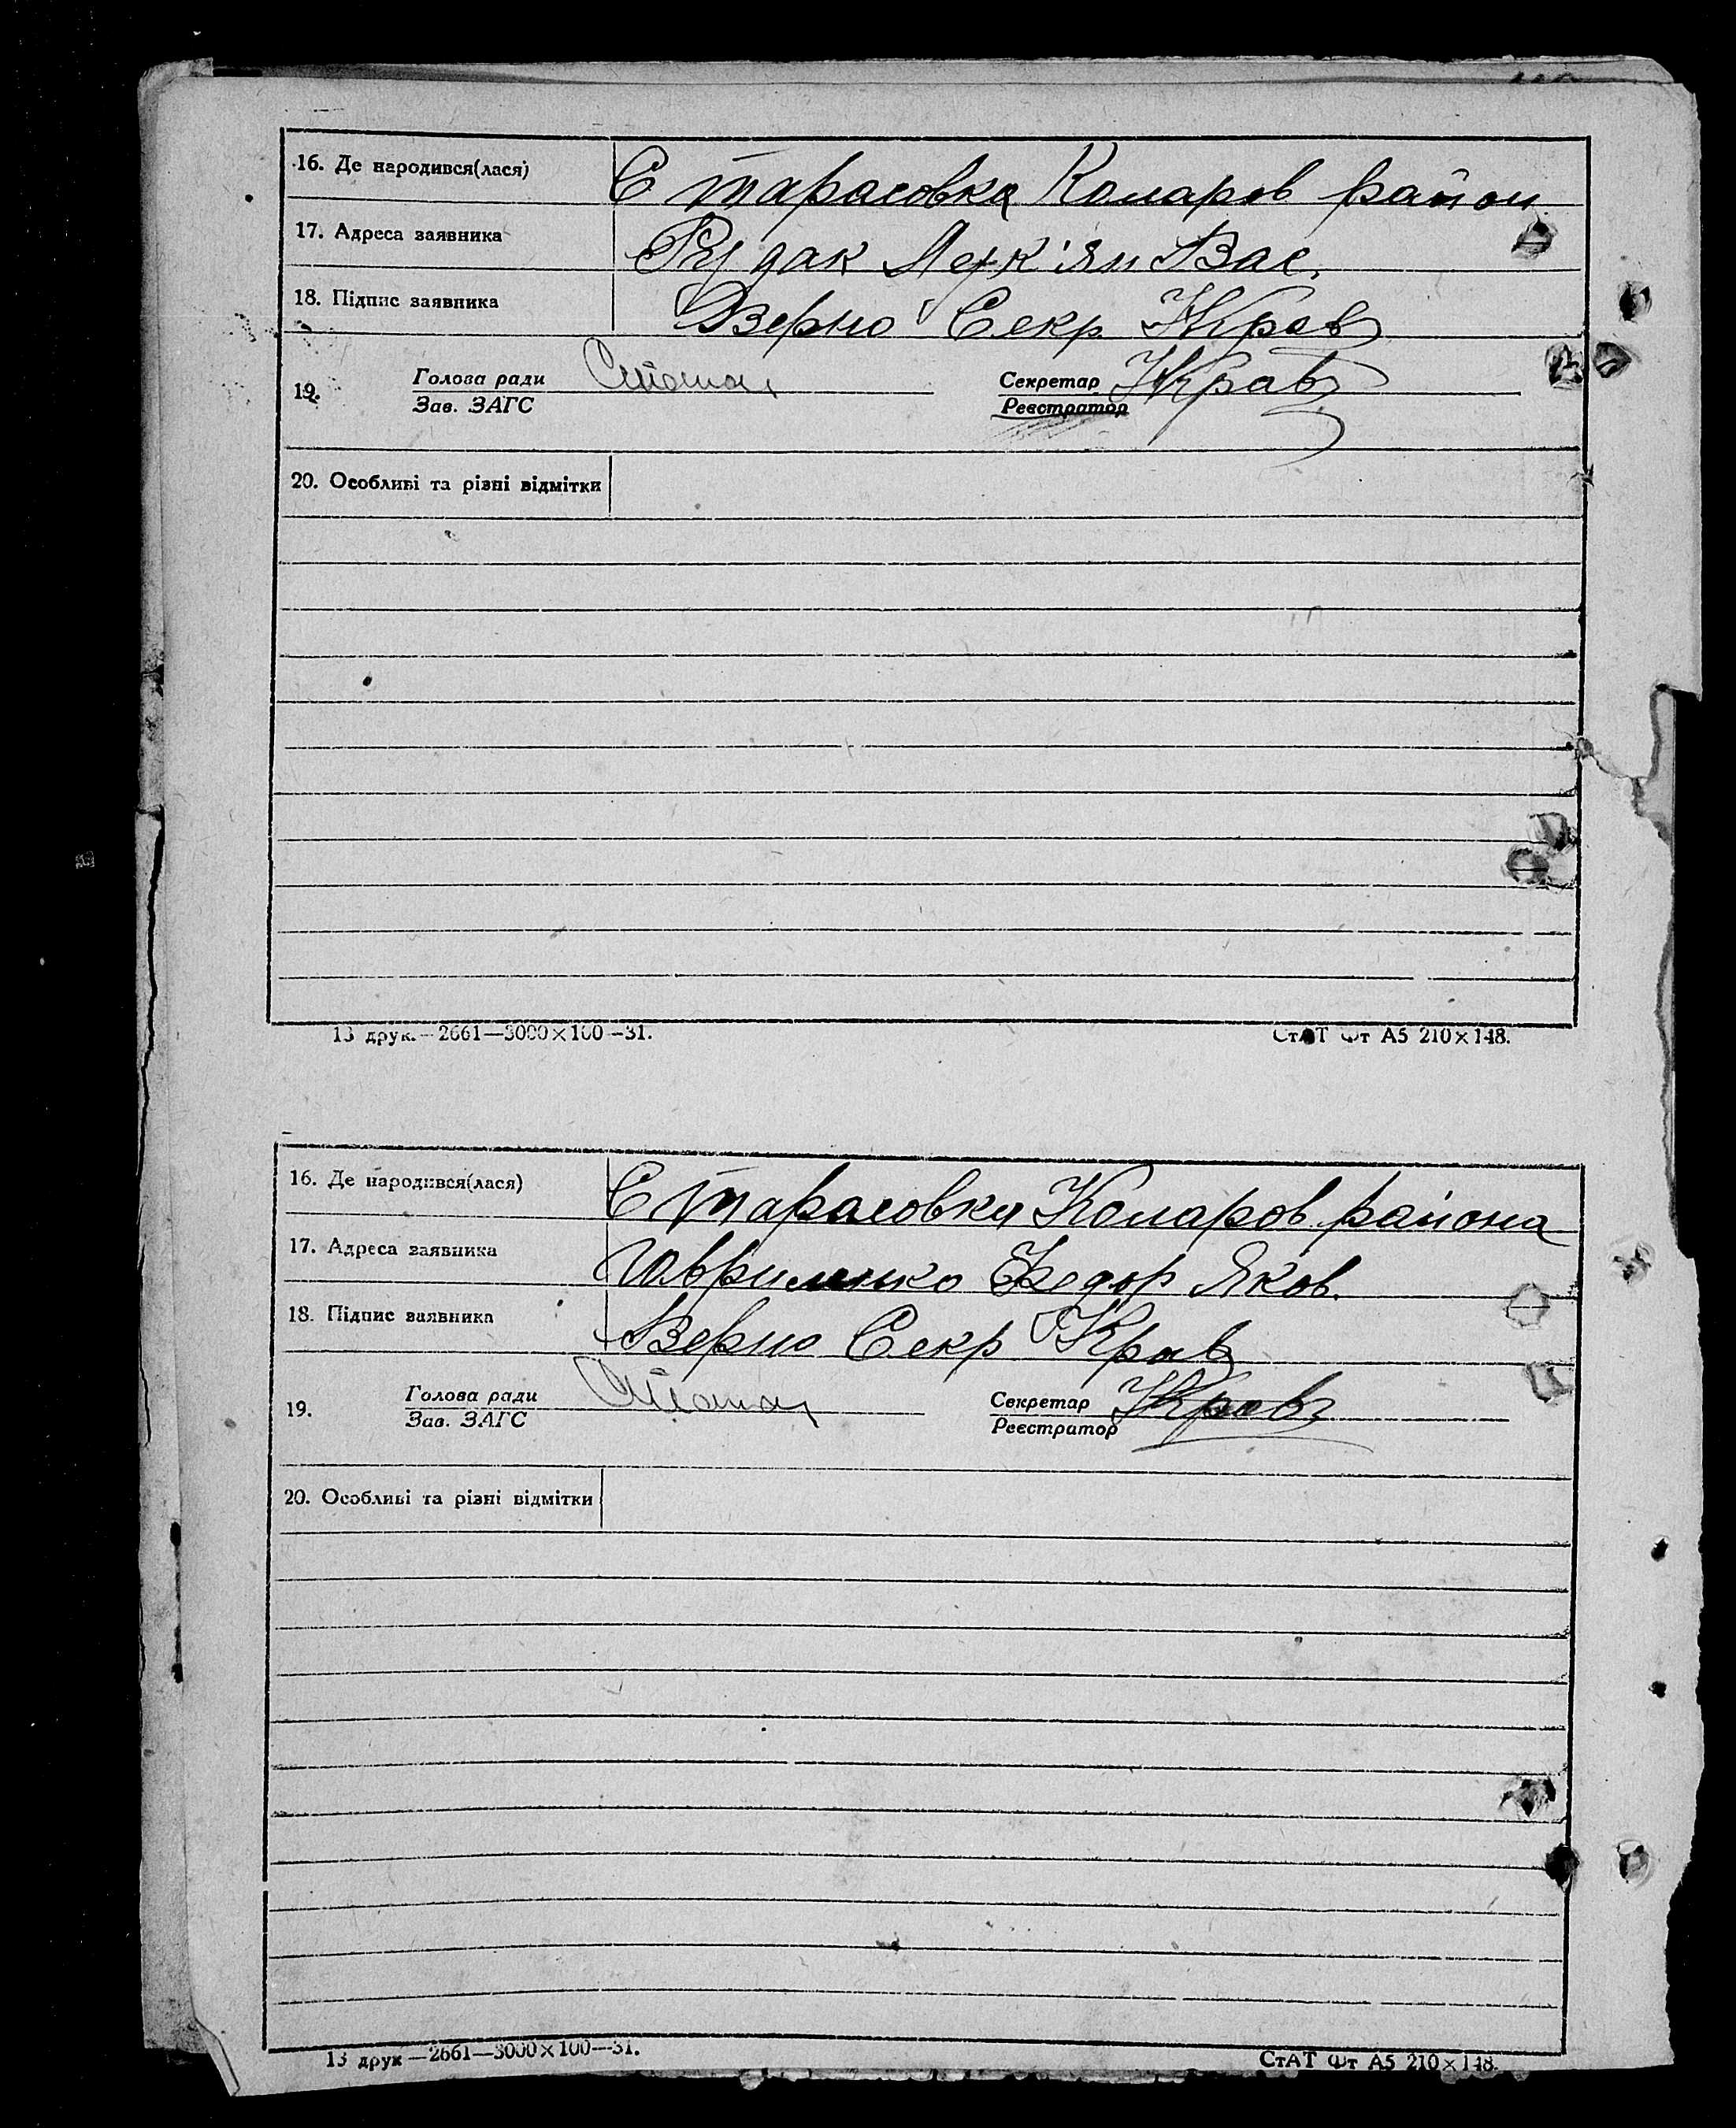 16. Де народився(лася) С Тарасовка Коларов район
17. Адреса заявника Рудак Лук'ян Вас.
18. Підпис заявника Верно Секр. Крав
19. Голова ради Секретар Крав
Зав. ЗАГС Реєстратор
20. Особливі та різні відмітки
13 друк.—2661—3000×100—31. СтАТ Фт А5 210×148.
16. Де народився(лася) С Тарасовка Коларов района
17. Адреса заявника Гавриленко Федор Яков.
18. Підпис заявника Верно Секр Крав
19. Голова ради Секретар Крав
Зав. ЗАГС Реєстратор
20. Особливі та різні відмітки
13 друк—2661—3000×100—31. СтАТ Фт А5 210×148.